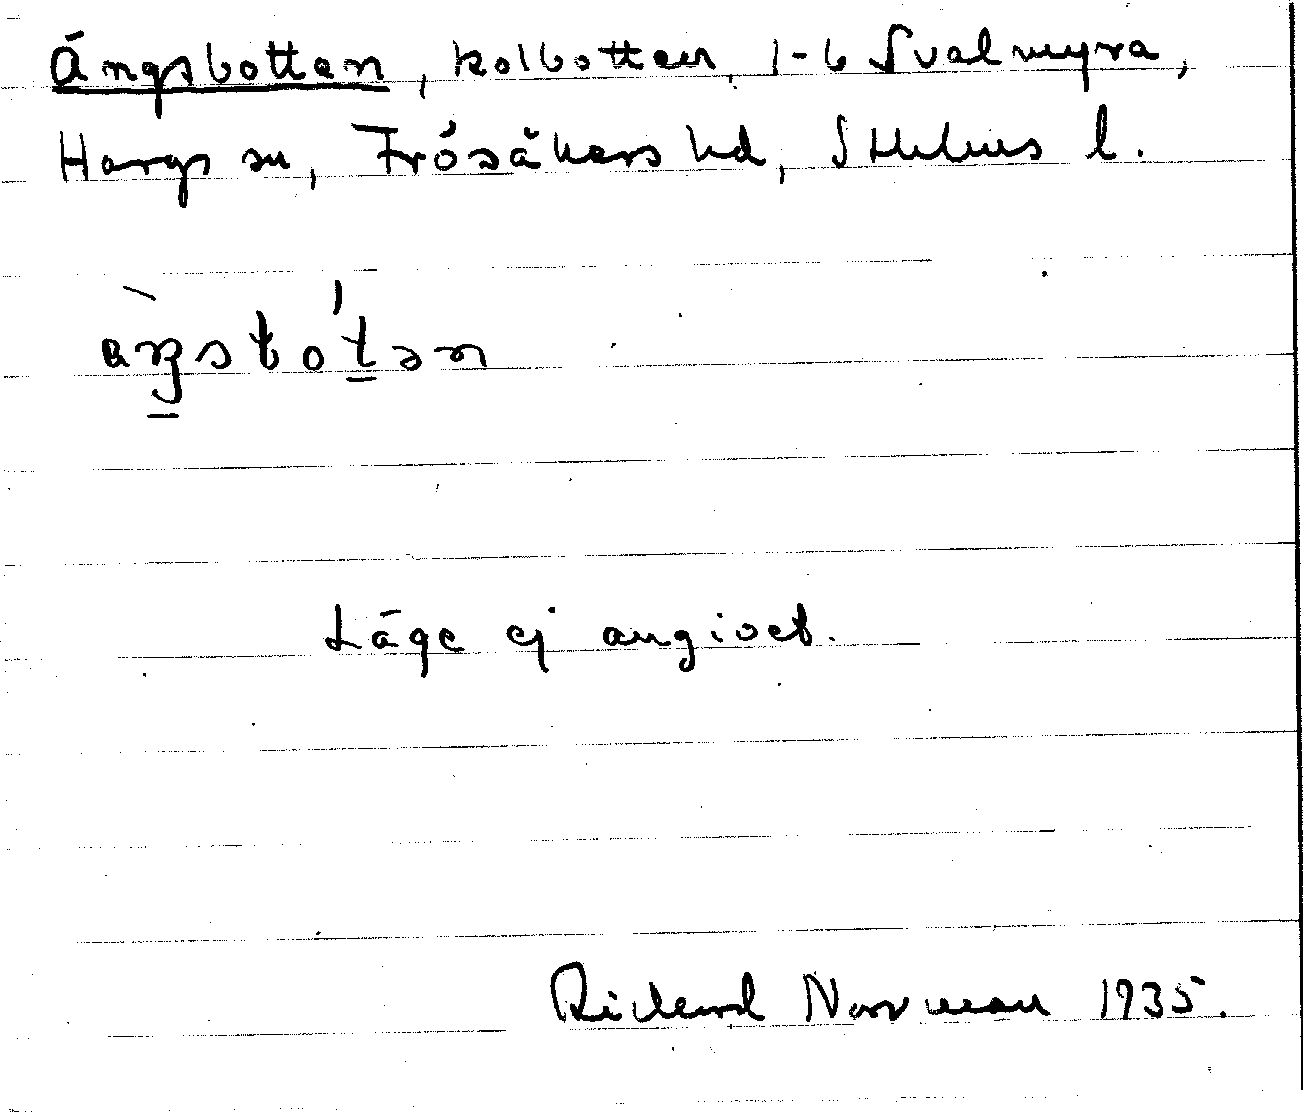 Ängsbotten, kolbotten, 1-6 Svalmyra,
Hargs sn, Frösåkers hd, Sthlms l.
Läge ej angivet.
Rickard Norrman 1935.